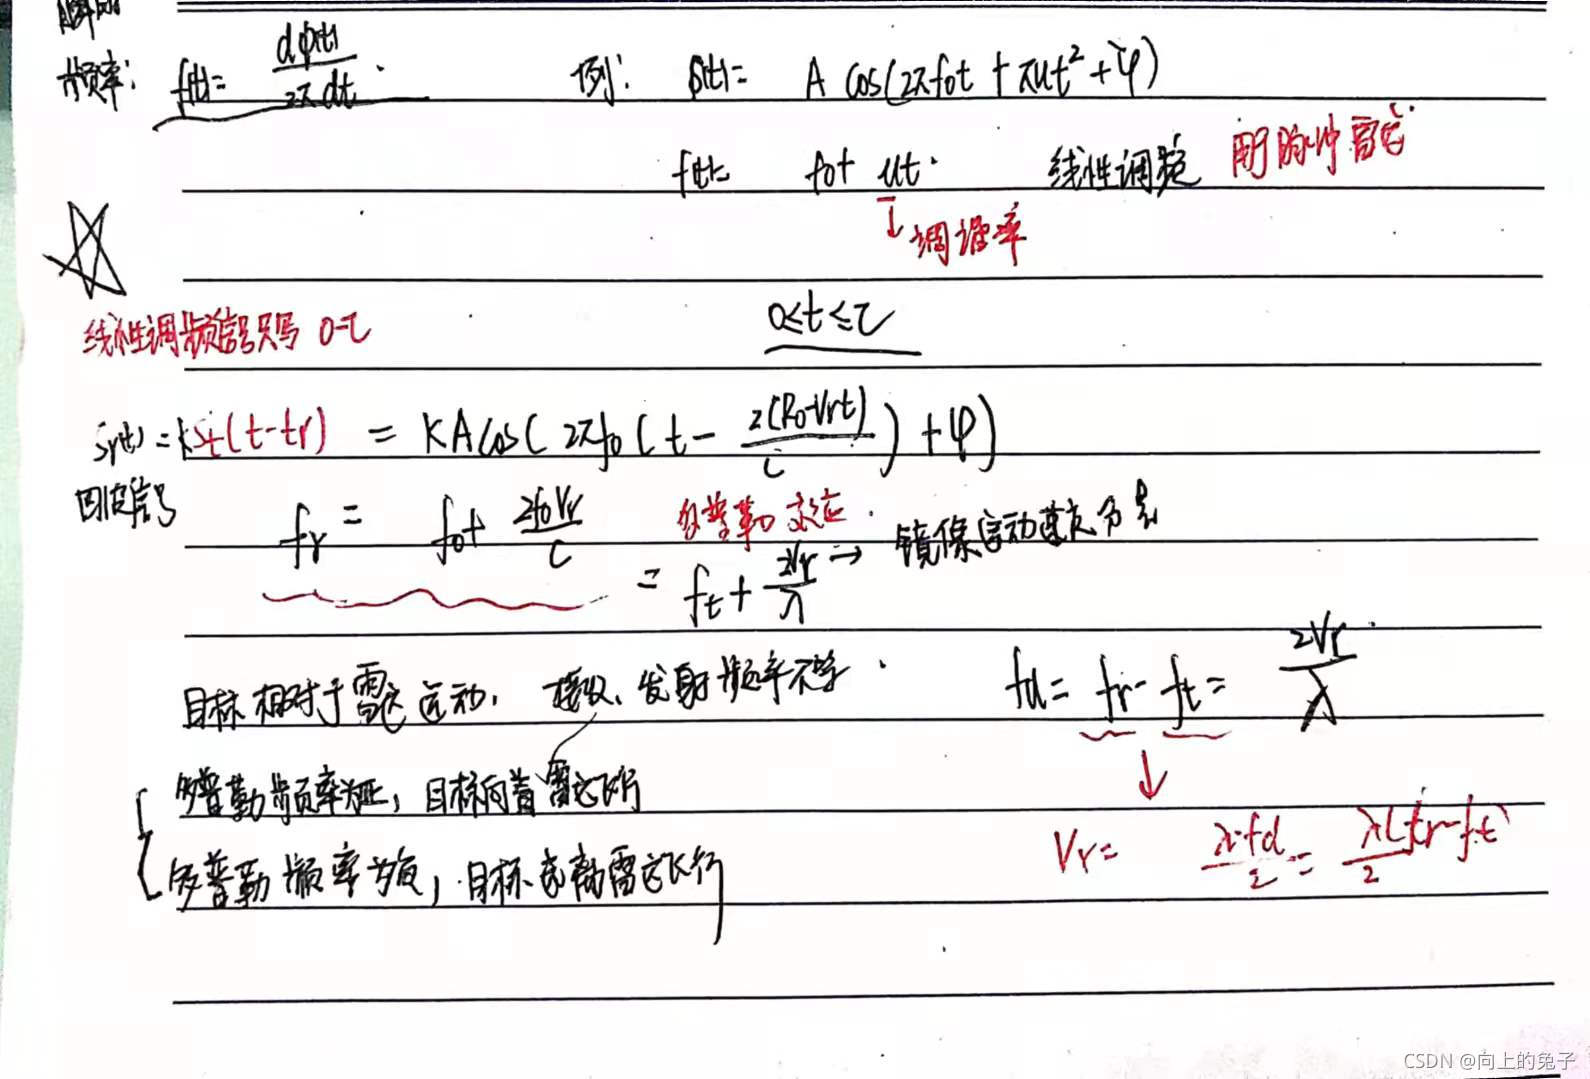 频率: f(t)= dφ(t)/2πdt . 例: s(t)= A cos(2πf₀t + πut² + φ)
f(t)= f₀+ ut. 线性调频 用于脉冲雷达
↓ 调谐率
线性调频信号只写 0-τ 0≤t≤τ
Sr(t) = kSt(t-tr) = KA cos( 2πf₀ ( t - 2(R₀-Vrt)/C ) + φ)
回波信号
fr = f₀+ 2f₀Vr/C 多普勒效应.
= ft + 2Vr/λ → 镜像
目标相对于雷达运动, 接收、发射频率不等. fd = fr - ft = 2Vr/λ
↓
多普勒频率为正, 目标向着雷达飞行
Vr = λ·fd/2 = λ(fr-ft)/2
多普勒频率为负, 目标离雷达飞行
CSDN @向上的兔子